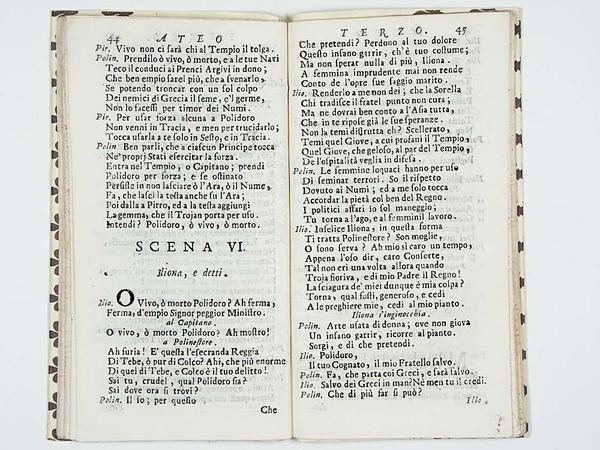 44 ATEO
Pir. Vivo non ci sarà chi al Tempio il tolga.
Polin. Prendilo ò vivo, ò morto, e a le tue Navi
Teco il conduci ai Prenci Argivi in dono;
Che ben empio sarei più, che a svenarlo,
Se potendo troncar con un sol colpo
Dei nemici di Grecia il seme, e'l germe,
Non lo facessi per timor dei Numi.
Pir. Per usar forza alcuna a Polidoro
Non venni in Tracia, e men per trucidarlo;
Tocca usarla a te solo in Sesto, o in Tracia.
Polin. Ben parli, che a ciascun Principe tocca
Ne' proprj Stati esercitar la forza.
Entra nel Tempio, o Capitano; prendi
Polidoro per forza; e se ostinato
Persiste in non lasciare ò l'Ara, ò il Nume,
Fa, che lasci la testa anche su l'Ara;
Poi dalla a Pirro, ed a la testa aggiungi
La gemma, che il Trojan porta per uso.
Intendi? Polidoro, ò vivo, ò morto.
SCENA VI.
Iliona, e detti.
Ilio. O Vivo, ò morto Polidoro? Ah ferma,
Ferma, d'empio Signor peggior Ministro.
al Capitano.
O vivo, ò morto Polidoro? Ah mostro!
a Polinestore.
Ah furia! E' questa l'esecranda Reggia
Di Tebe, ò pur di Colco? Ahi, che più enorme
Di quel di Tebe, e Colco è il tuo delitto!
Sai tu, crudel, qual Polidoro sia?
Sai dove ora si trovi?
Polin. Il so; per questo
Che
TERZO. 45
Che pretendi? Perdono al tuo dolore
Questo insano garrir, ch'è tuo costume;
Ma non sperar nulla di più, Iliona.
A femmina imprudente mai non rende
Conto de l'opre sue saggio marito.
Ilio. Renderlo a me non dei; che la Sorella
Chi tradisce il fratel punto non cura;
Ma ne dovrai ben conto a l'Asia tutta,
Che in te ripose già le sue speranze.
Non la temi distrutta eh? Scellerato,
Temi quel Giove, a cui profani il Tempio,
Quel Giove, che geloso, al par del Tempio,
De l'ospitalità veglia in difesa.
Polin. Le femmine loquaci hanno per uso
Di seminar terrori. So il rispetto
Dovuto ai Numi; ed a me solo tocca
Accordar la pietà col ben del Regno.
I politici affari io sol maneggio;
Tu torna a l'ago, e al femminil lavoro.
Ilio. Infelice Iliona, in questa forma
Ti tratta Polinestore? Son moglie,
O sono serva? Ah mio sì caro un tempo,
Appena l'oso dir, caro Consorte,
Tal non eri una volta allora quando
Troja fioriva, e di mio Padre il Regno!
La sciagura de' miei dunque è mia colpa?
Torna, qual fosti, generoso, e cedi
A le preghiere mie, cedi al mio pianto.
Iliona s'inginocchia.
Polin. Arte usata di donna; ove non giova
Un insano garrir, ricorre al pianto.
Sorgi, e di che pretendi.
Ilio. Polidoro,
Il tuo Cognato, il mio Fratello salvo.
Polin. Fa, che parta coi Greci, e sarà salvo.
Ilio. Salvo dei Greci in man? Nè men tu il credi.
Polin. Che di più far si può?
Ilio.